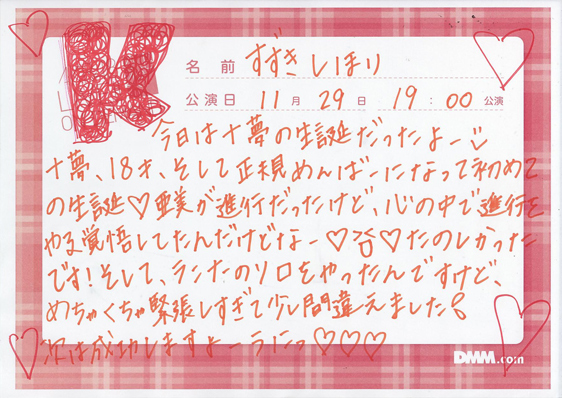 K
名前 すずきしほり
公演日 11月29日 19:00公演
今日は十夢の生誕だったよー
十夢、18才、そして正規めんばーになって初めて
の生誕♡亜美が進行だったけど、心の中で進行を
やる覚悟してたんだけどなー♡ ♡たのしかった
です!そして、ランナのソロをやったんですけど、
めちゃくちゃ緊張しすぎて少し間違えました
次は成功しますよーうにっ♡♡♡
DMM.com